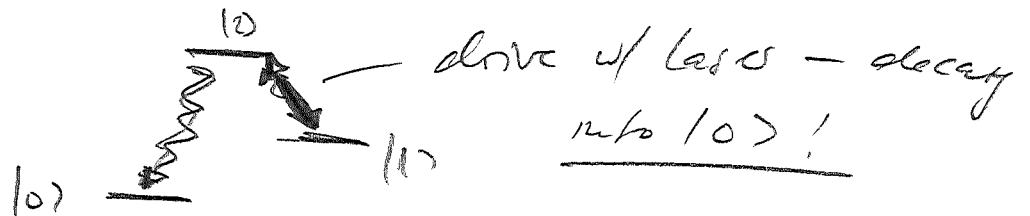 |2>
drive w/ laser — decay
into |0> !
|1>
|0>